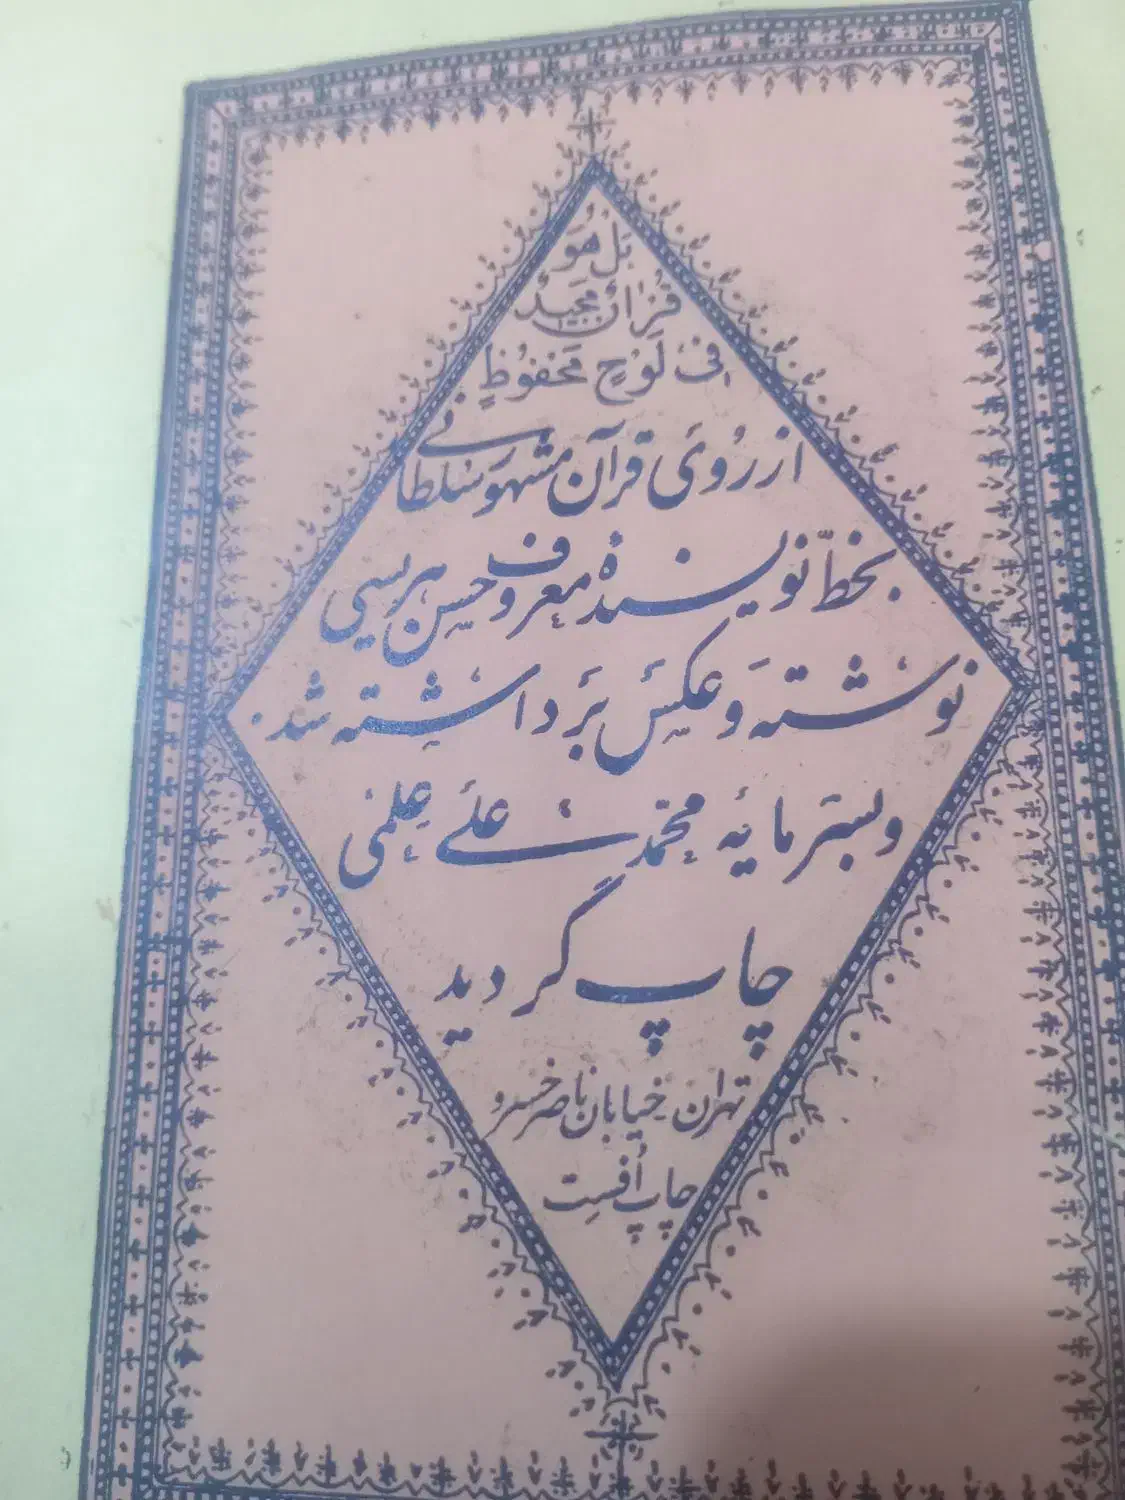 بَلْ هُوَ
قُرْاٰنٌ مَجیدٌ
فی لَوْحٍ مَحْفُوظٍ
از روُیَ قرآن مشهوَر سُلطانی
بخطّ نویسندهٔ معروُف حسن هریسی
نوشته وَ عکسَ بَرداشته شد.
وبسَرمایهٔ محمّد علَی عِلمی
چاپ گردید
تهران خیابان ناصرخسرو
چاپ اُفست